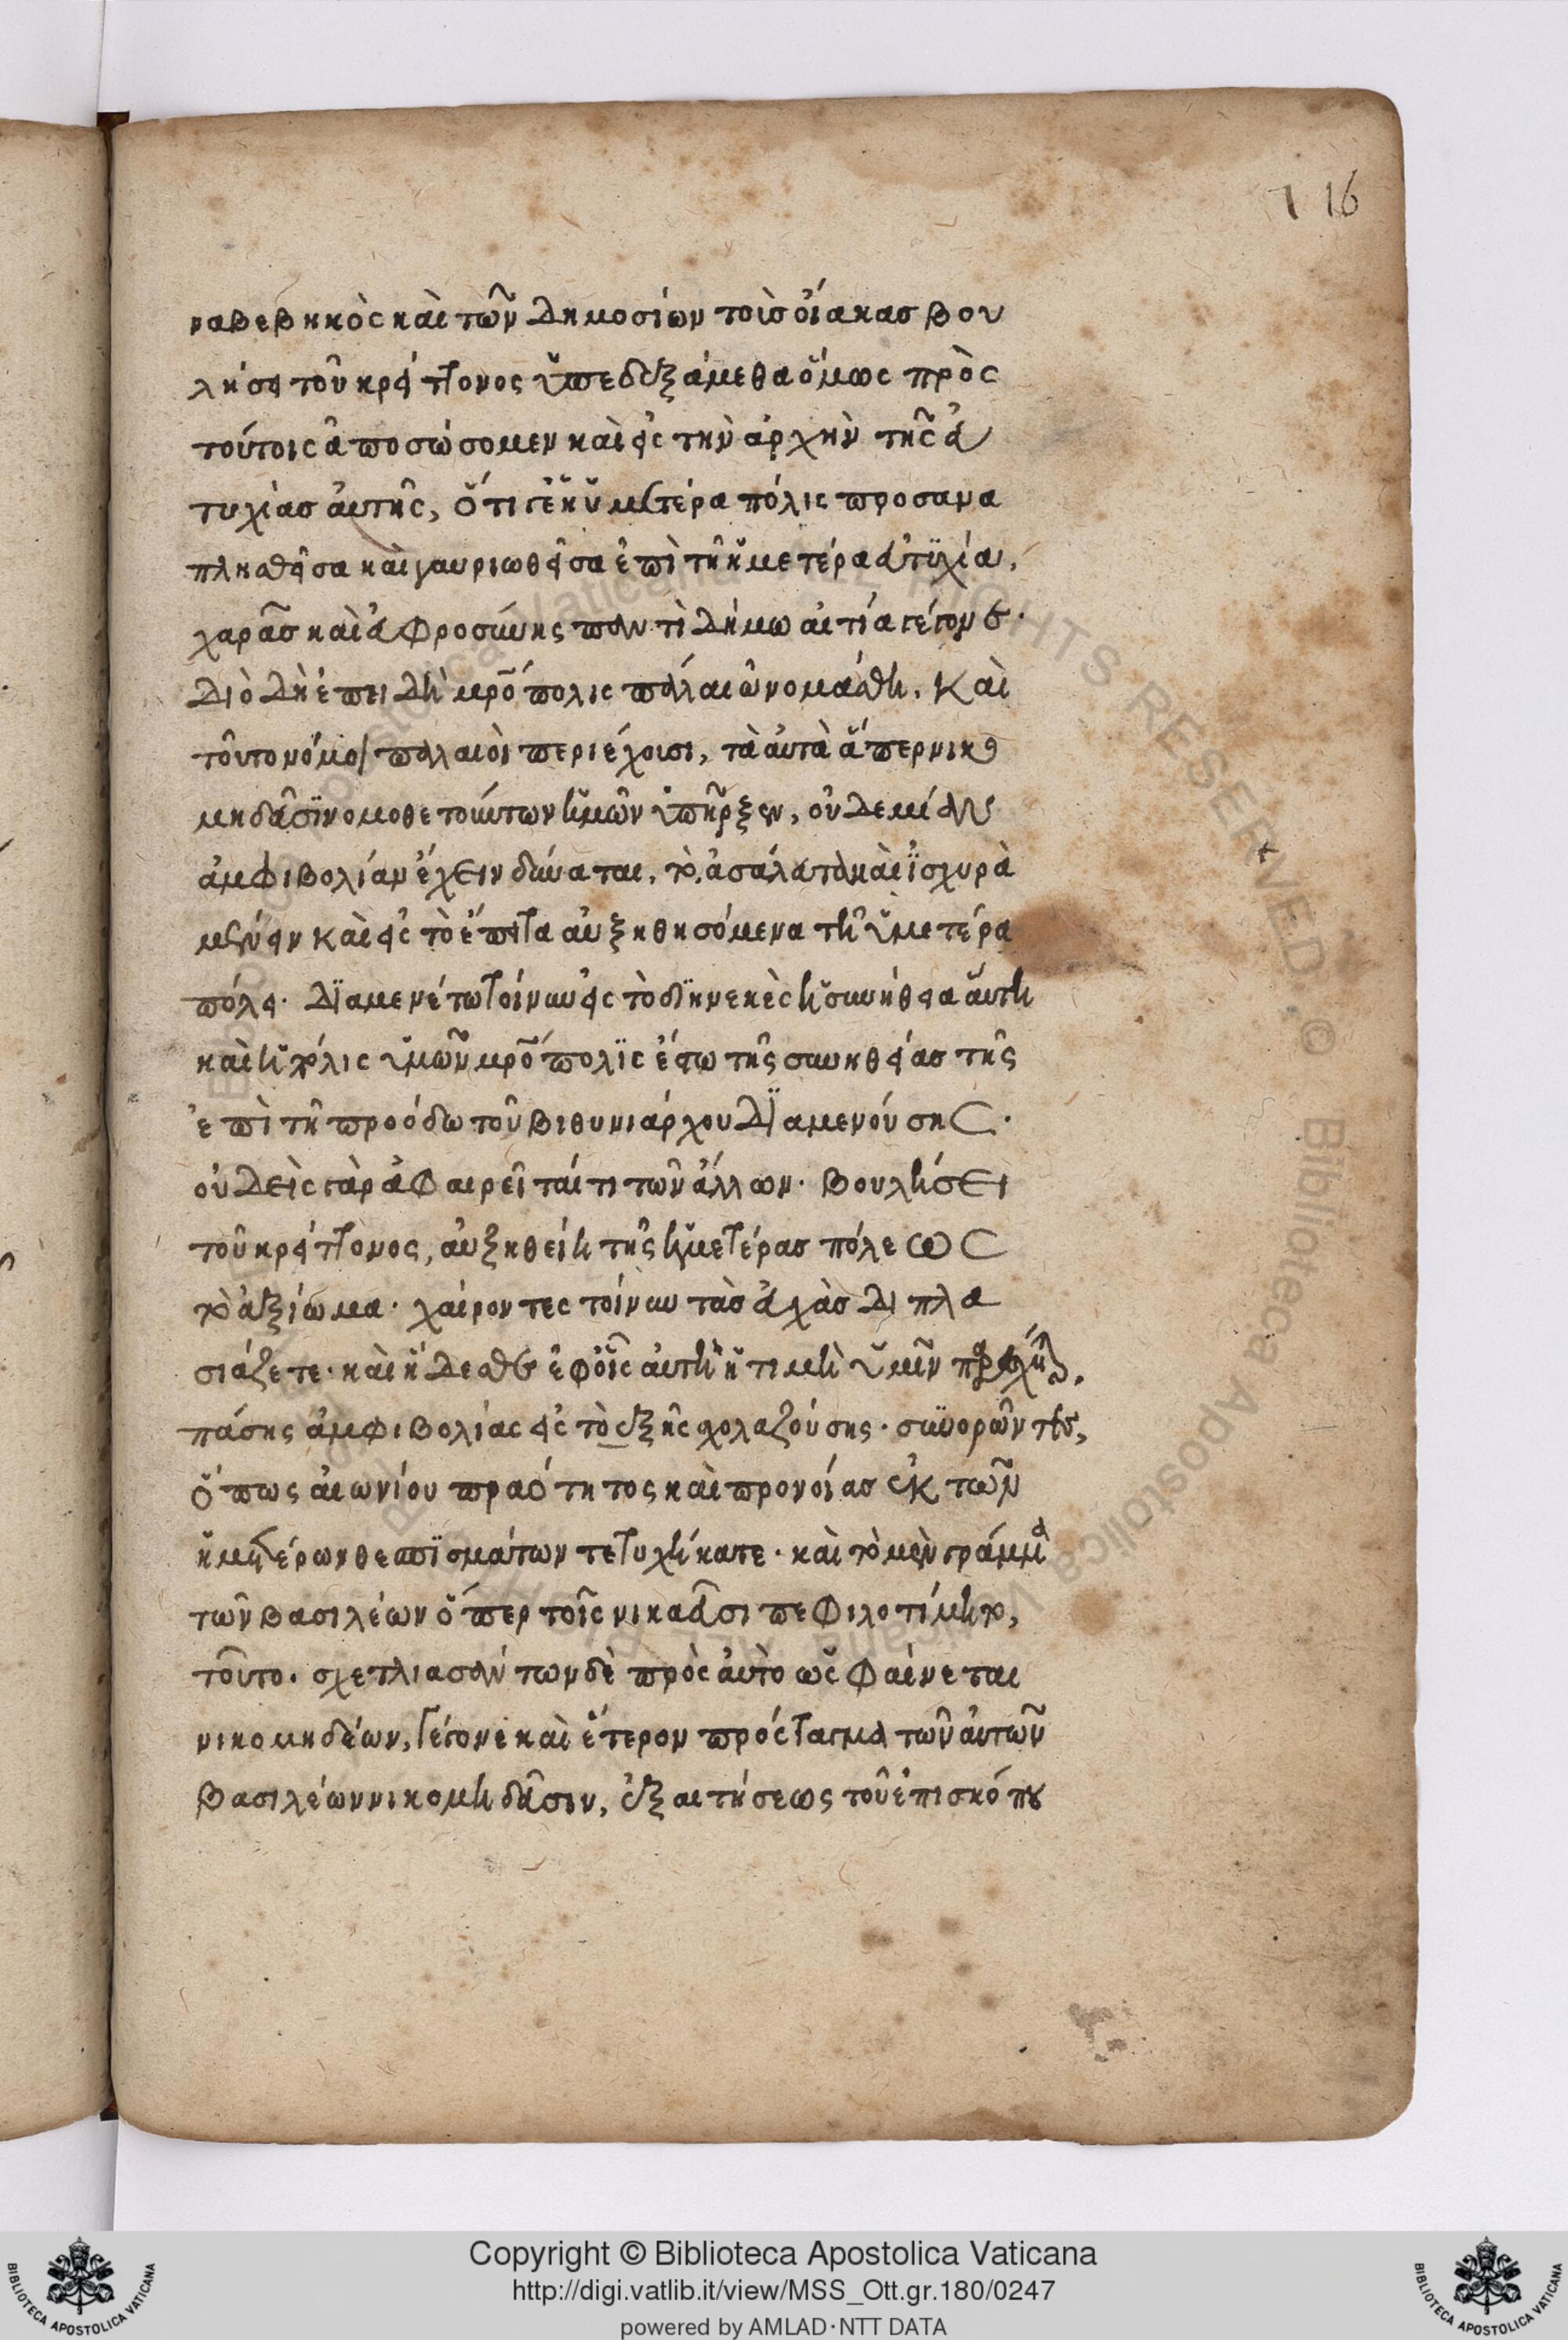 7 16
ναβεβηκὸς καὶ τῶν δημοσίων τοὺσ οἴακασ βου
λήσει τοῦ κρείττονος ὑπεδεξάμεθα ὅμως πρὸς
τούτοις ἀποσώσομεν καὶ εἰς τὴν ἀρχὴν τῆς ἀ
τυχίασ αὐτῆς, ὅτι γε ἡ ὑμετέρα πόλις προσανα
πλησθεῖσα καὶ γαυριωθεῖσα ἐπὶ τῇ ἡμετέρα ἀτυχία,
χαρᾶσ καὶ ἀφροσύνης παντὶ δήμω αἰτία γέγονε·
διὸ δὴ ἐπειδὴ μρόπολις πάλαι ὠνομάσθη, καὶ
τοῦτο νόμοι παλαιοὶ περιέχουσι, τὰ αὐτὰ ἅπερ νικο
μηδεῦσϊ νομοθετούντων ἡμῶν ὑπῆρξεν, οὐδεμίαν
ἀμφιβολίαν ἔχειν δύναται, τὸ, ἀσάλευτα καὶ ἰσχυρὰ
μένειν καὶ εἰς τὸ ἔπειτα αὐξηθησόμενα τῆ ὑμετέρα
πόλει· δϊαμενέτω τοίνυν εἰς τὸ δϊηνεκὲς ἡ συνήθεια αὕτη
καὶ ἡ πόλις ὑμῶν μρόπολϊς ἔστω τῆς συνηθείασ τῆς
ἐπὶ τῆ προόδω τοῦ βιθυνιάρχου δϊαμενούσης·
οὐδεὶς γὰρ ἀφαιρεῖταί τι τῶν ἄλλων· βουλήσει
τοῦ κρείττονος, αὐξηθείη τῆς ἡμετέρασ πόλεως
τὸ ἀξίωμα· χαίροντες τοίνυν τὰσ εὐχὰσ διπλα
σιάζετε· καὶ ἥδεσθε ἐφ' οἷς αὐτὴ ἡ τιμὴ ὑμῖν
πάσης ἀμφιβολίας εἰς τὸ ἑξῆς σχολαζούσης· συνορῶντες,
ὅπως αἰωνίου πραότητος καὶ προνοίασ ἐκ τῶν
ἡμετέρων θεσπϊσμάτων τετυχήκατε· καὶ τὸ μὲν γράμμα
τῶν βασιλέων ὅπερ τοῖς νικαεῦσι πεφιλοτίμητο,
τοῦτο. σχετλιασάντων δὲ πρὸς αὐτὸ ὡς φαίνεται
νικομηδέων, γέγονε καὶ ἕτερον πρόσταγμα τῶν αὐτῶν
βασιλέων νικομηδεῦσιν, ἐξ αἰτήσεως τοῦ ἐπισκόπου
Copyright © Biblioteca Apostolica Vaticana
http://digi.vatlib.it/view/MSS_Ott.gr.180/0247
powered by AMLAD·NTT DATA
BIBLIOTECA APOSTOLICA VATICANA
BIBLIOTECA APOSTOLICA VATICANA